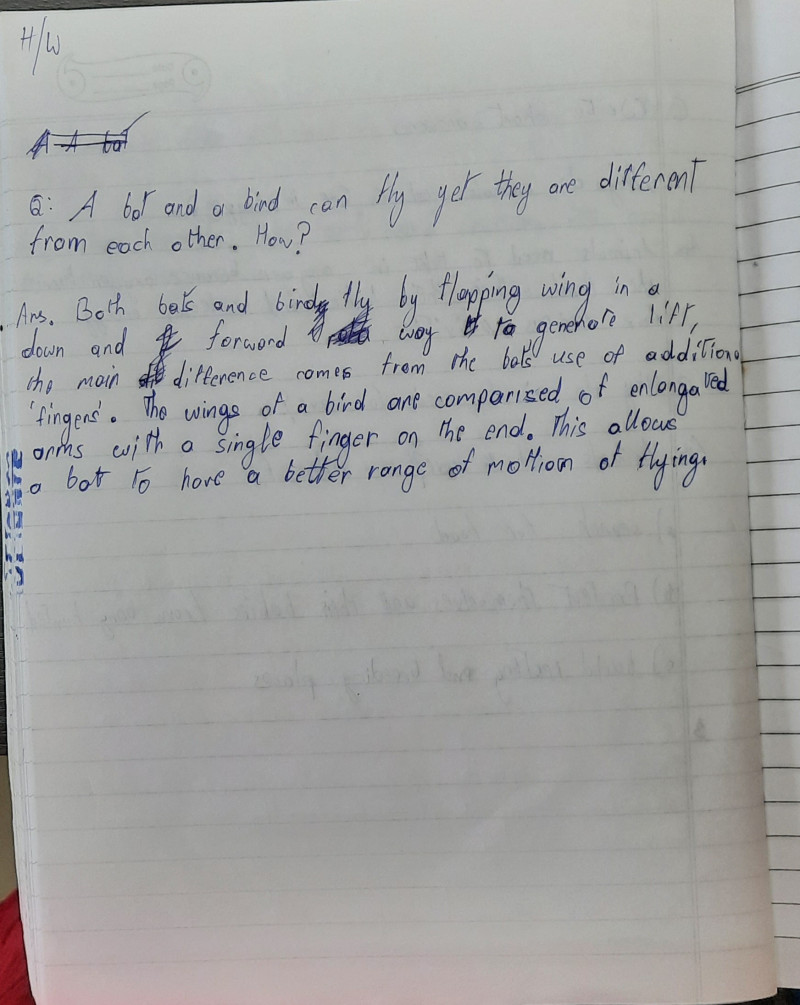 H/W
Q: A bat and a bird can fly yet they are different
from each other. How?
Ans. Both bats and birds fly by flapping wing in a
down and forward way to generate lift,
the main difference comes from the bats use of addition
'fingers'. The wings of a bird are comparised of enlongated
arms with a single finger on the end. This allows
a bat to have a better range of mottion of flying.